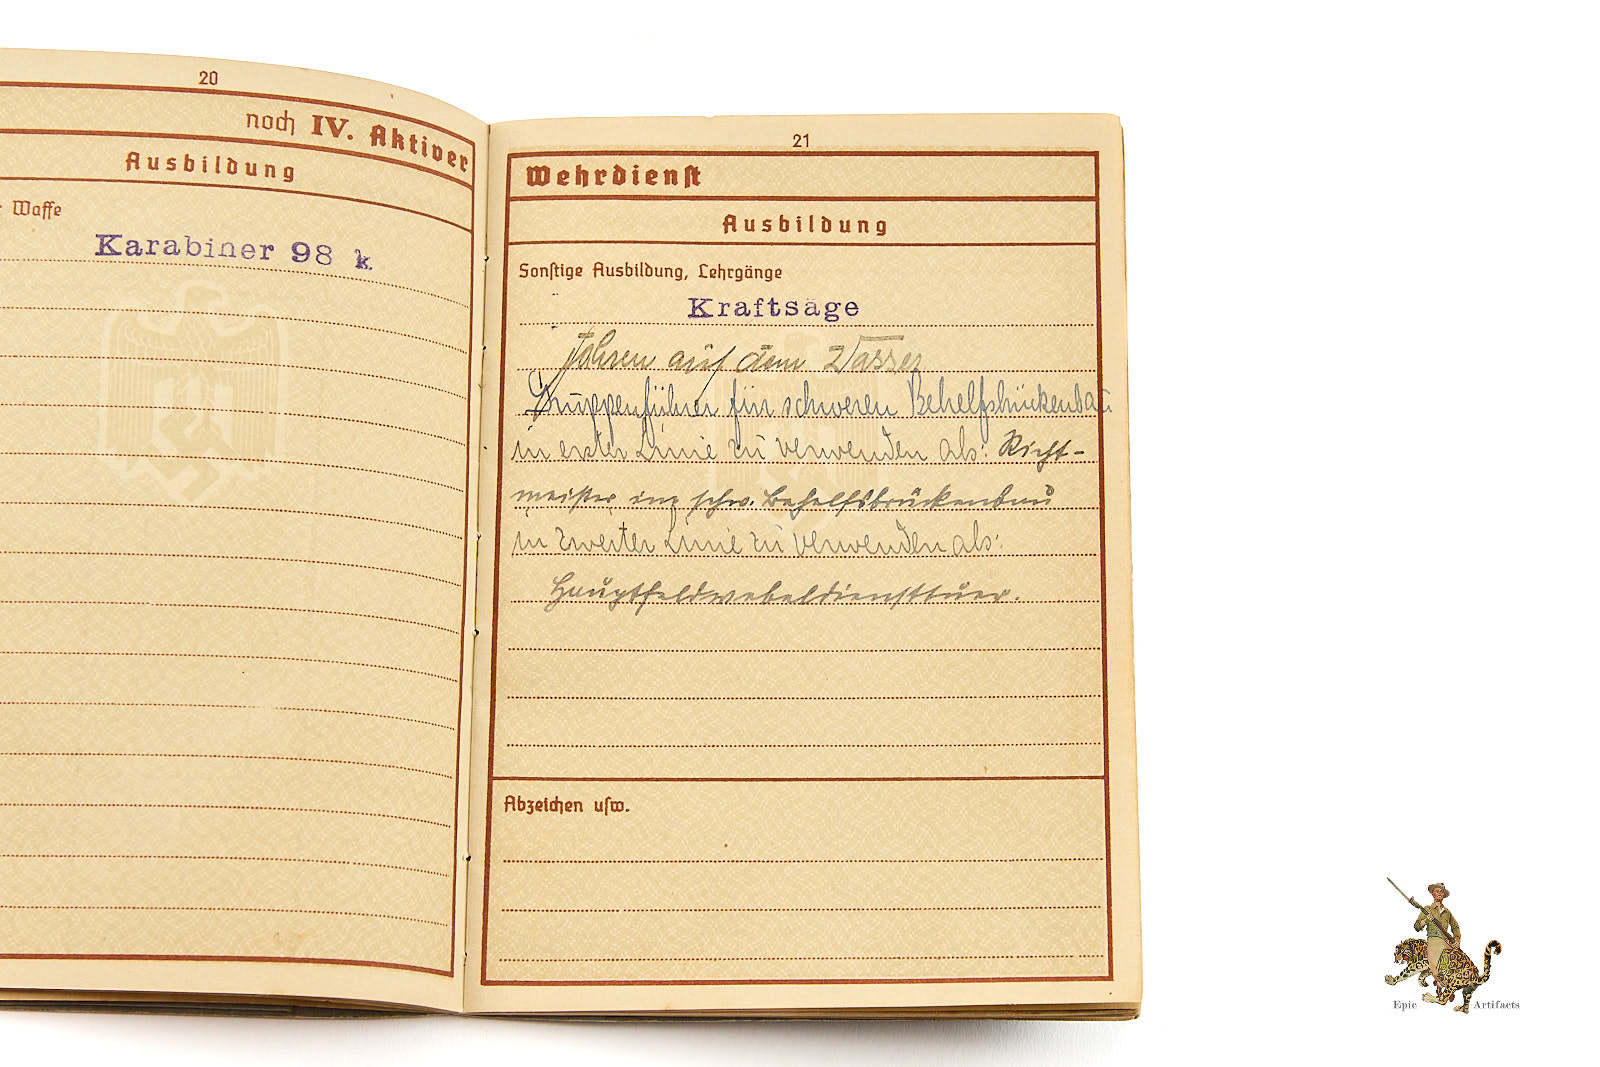 20
noch IV. Aktiver
Ausbildung
Waffe
Karabiner 98 k.
21
Wehrdienst
Ausbildung
Sonstige Ausbildung, Lehrgänge
Kraftsäge
Fahren auf dem Wasser
Gruppenführer für schweren Behelfsbrückenbau
in erster Linie zu verwenden als: Richt-
meister im schw. Behelfsbrückenbau
in zweiter Linie zu verwenden als:
Hauptfeldwebeldiensttuer.
Abzeichen usw.
Epic Artifacts